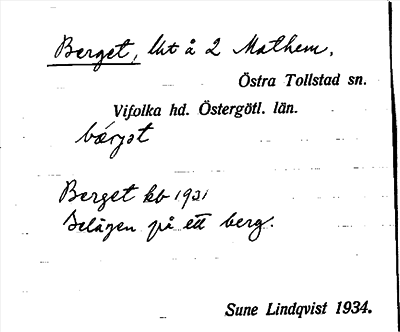 Berget, lht å 2 Mathem.
Östra Tollstad sn.
Vifolka hd. Östergötl. län.
bærgət
Berget kb 1921
Belägen på ett berg.
Sune Lindqvist 1934.